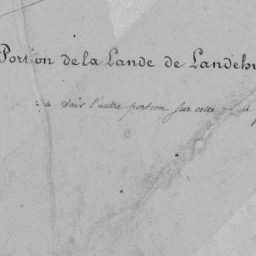 Portion de la Lande de Landeh
Vois l'autre portion sur cette